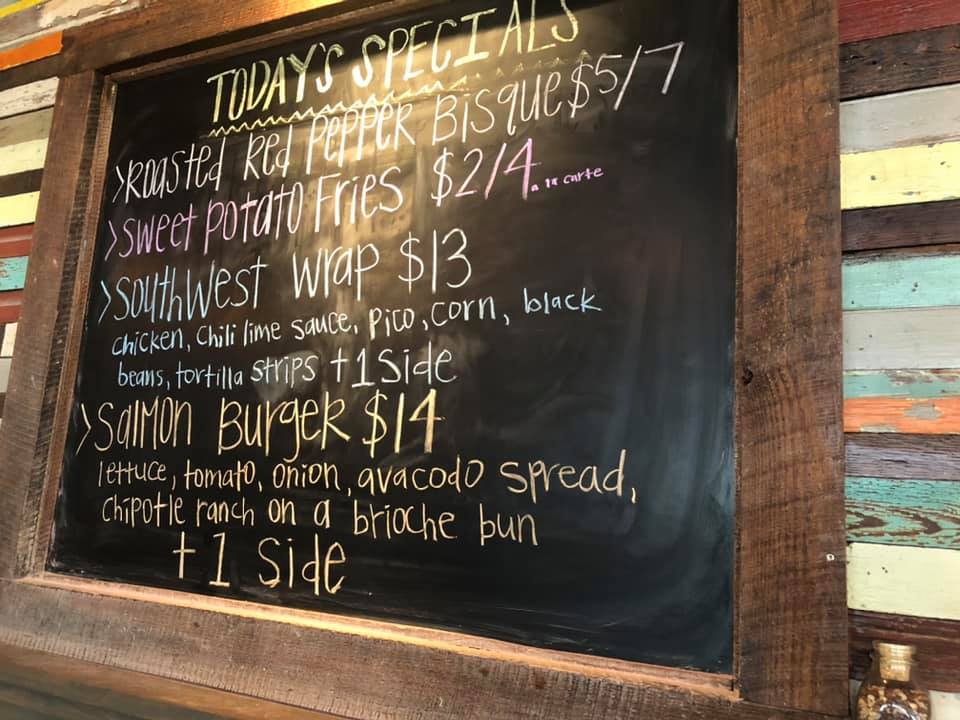 TODAY'S SPECIALS
>Roasted Red Pepper Bisque $5/7
>Sweet Potato Fries $2/4 a la carte
>Southwest Wrap $13
chicken, chili lime sauce, pico, corn, black
beans, tortilla strips +1 Side
>Salmon Burger $14
lettuce, tomato, onion, avacodo spread,
chipotle ranch on a brioche bun
+1 Side